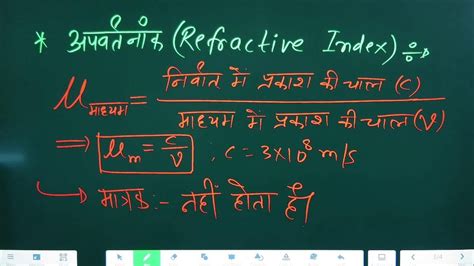 * अपवर्तनांक (Refractive Index) ÷→
μमाध्यम = निर्वात में प्रकाश की चाल (C) / माध्यम में प्रकाश की चाल (V)
⇒ μm = C/V , C = 3×10⁸ m/s
↳ मात्रक :- नहीं होता है।
1/4